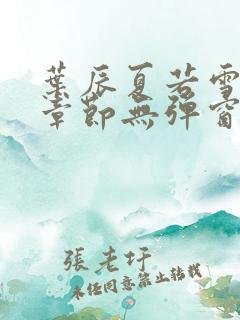 葉辰夏若雪
章節無彈窗
張老圩
未經同意禁止轉載